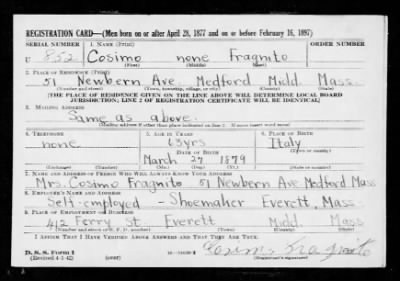 REGISTRATION CARD—(Men born on or after April 28, 1877 and on or before February 16, 1897)
SERIAL NUMBER 1. NAME (Print) ORDER NUMBER
U 852 Cosimo none Fragnito
(First) (Middle) (Last)
2. PLACE OF RESIDENCE (Print)
51 Newbern Ave Medford Midd Mass
(Number and street) (Town, township, village, or city) (County) (State)
[THE PLACE OF RESIDENCE GIVEN ON THE LINE ABOVE WILL DETERMINE LOCAL BOARD
JURISDICTION; LINE 2 OF REGISTRATION CERTIFICATE WILL BE IDENTICAL]
3. MAILING ADDRESS
Same as above.
[Mailing address if other than place indicated on line 2. If same insert word same]
4. TELEPHONE 5. AGE IN YEARS 6. PLACE OF BIRTH
none 63yrs Italy
DATE OF BIRTH (Town or county)
March 27 1879
(Exchange) (Number) (Mo.) (Day) (Yr.) (State or country)
7. NAME AND ADDRESS OF PERSON WHO WILL ALWAYS KNOW YOUR ADDRESS
Mrs. Cosimo Fragnito 51 Newbern Ave Medford Mass
8. EMPLOYER'S NAME AND ADDRESS
Self-employed - Shoemaker Everett, Mass.
9. PLACE OF EMPLOYMENT OR BUSINESS
412 Ferry St. Everett Midd. Mass
(Number and street or R. F. D. number) (Town) (County) (State)
I AFFIRM THAT I HAVE VERIFIED ABOVE ANSWERS AND THAT THEY ARE TRUE.
Cosimo Fragnito
D. S. S. Form 1
(Revised 4-1-42) (over) (Registrant's signature)